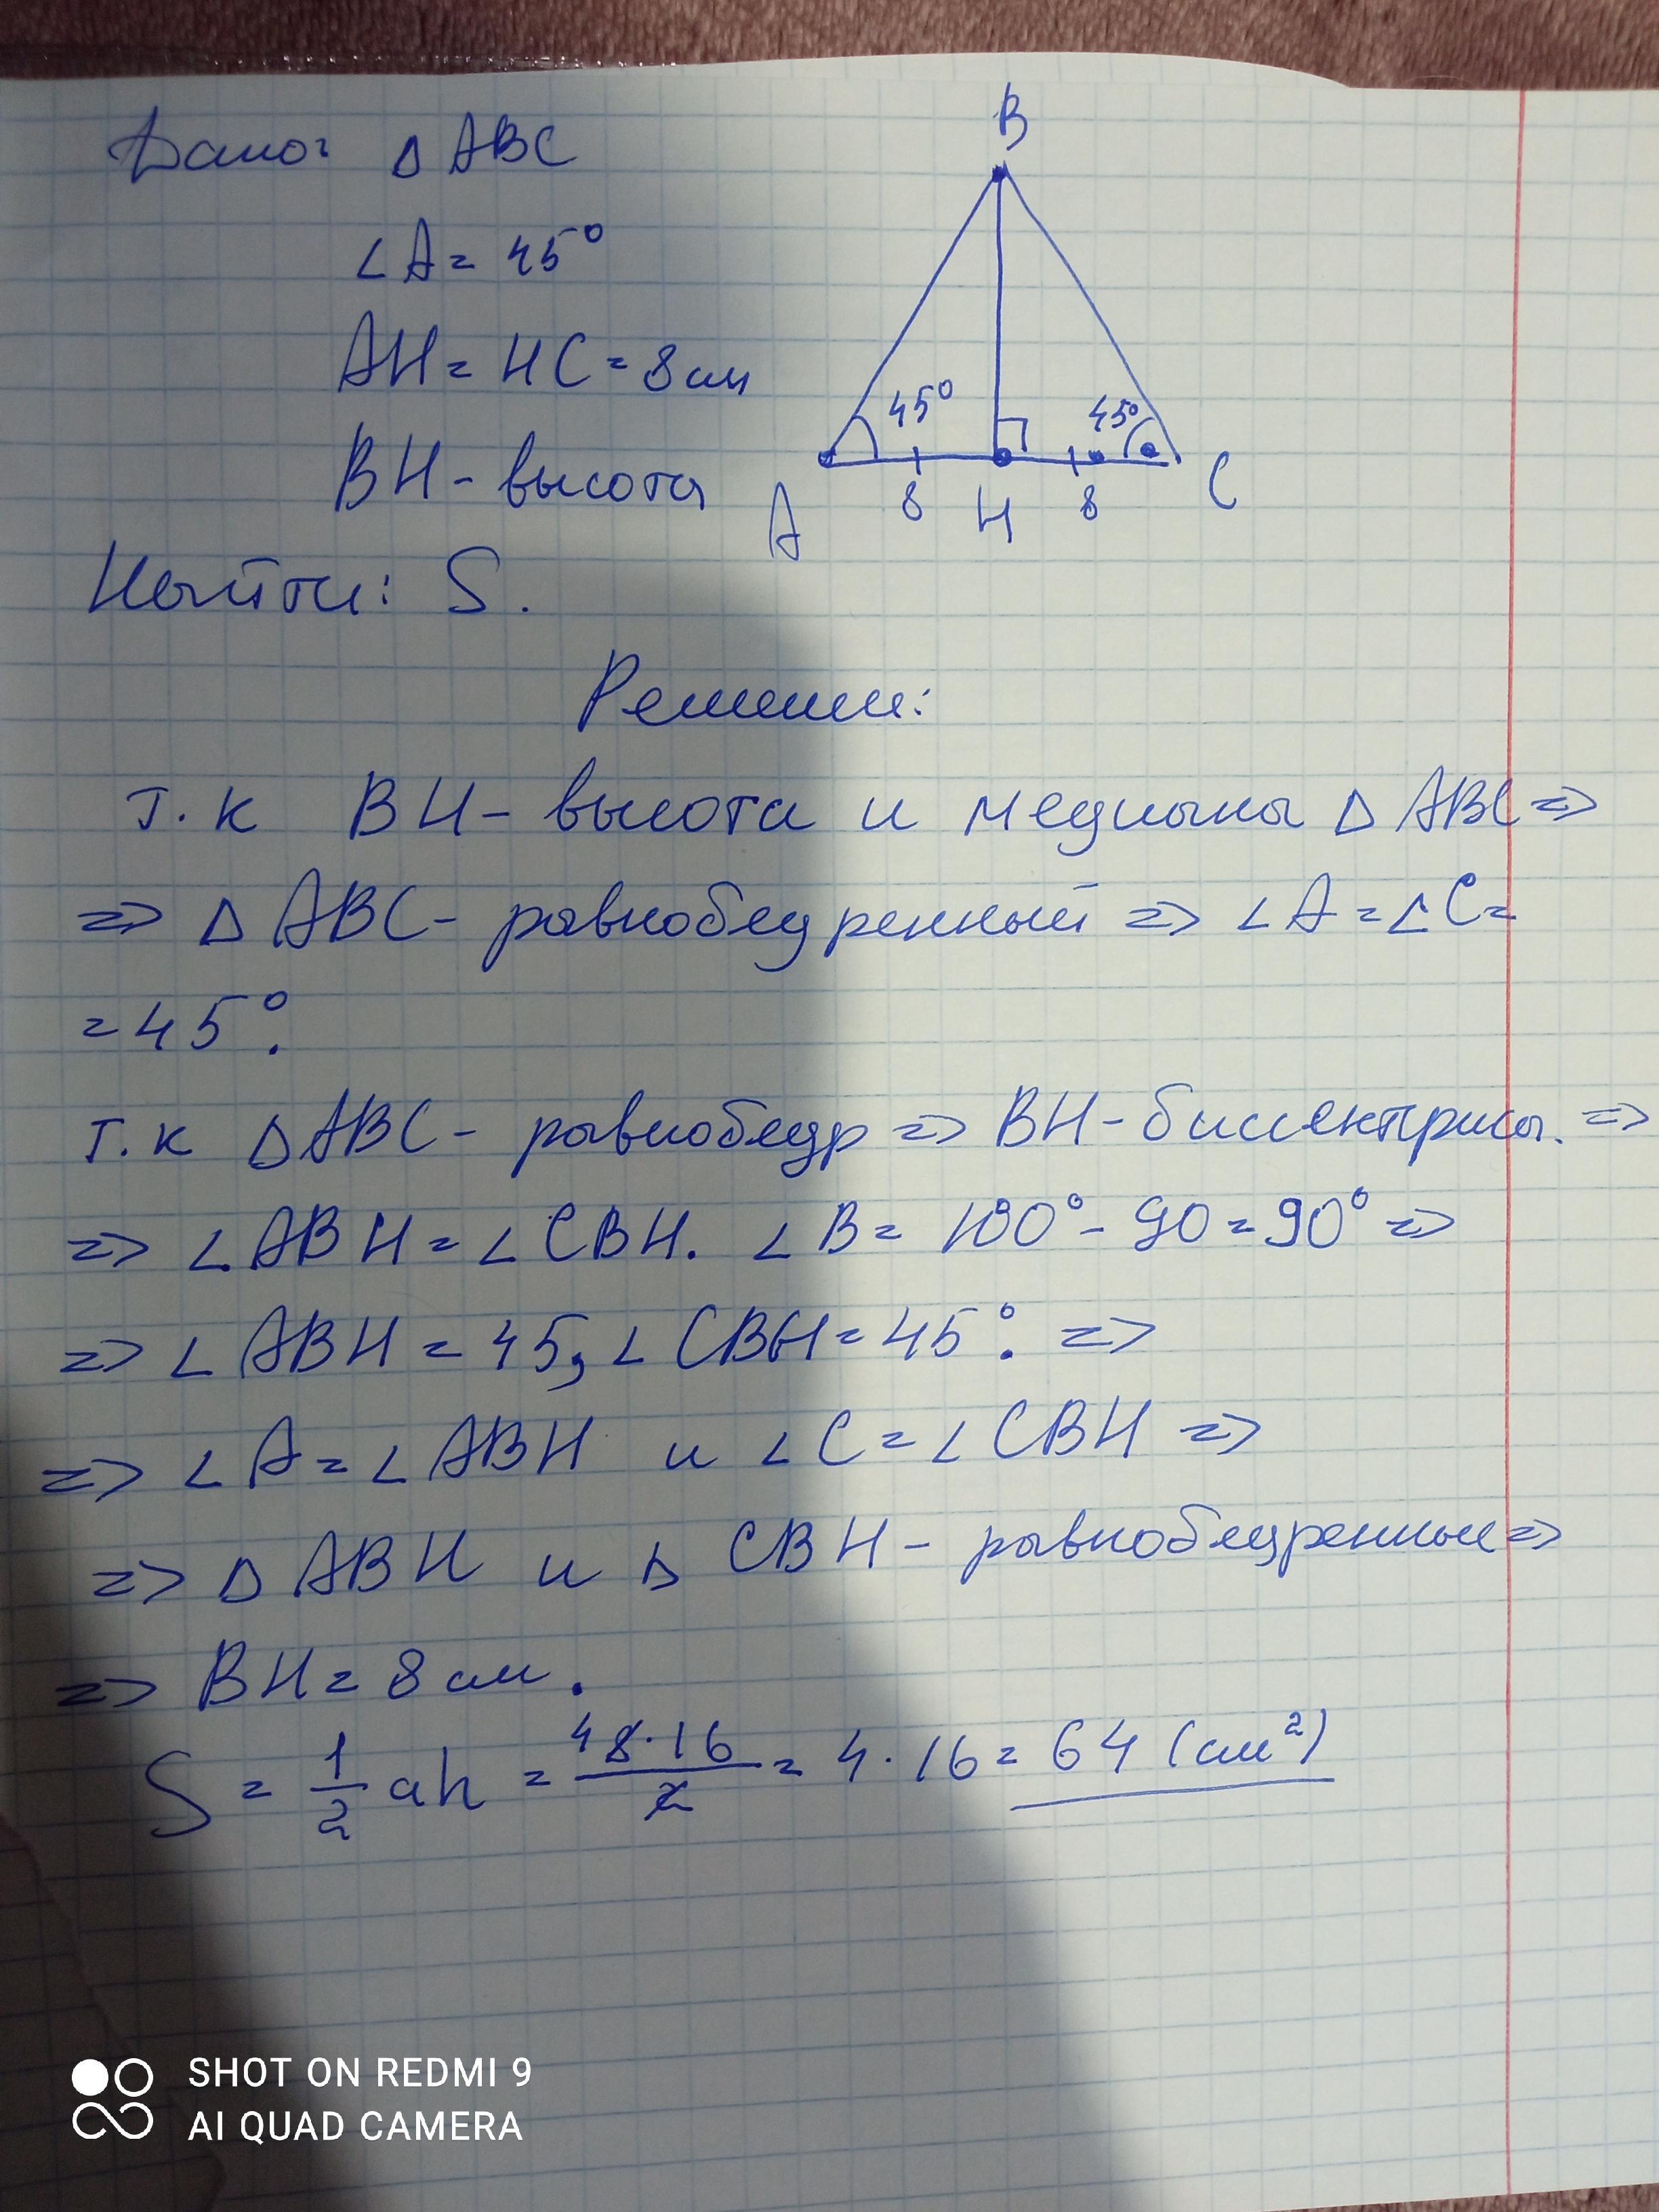 Дано: Δ ABC
∠A = 45°
AH = HC = 8 см
BH - высота
Найти: S.
B
45°
45°
A
8
H
8
C
Решение:
т.к BH - высота и медиана Δ ABC =>
=> Δ ABC - равнобедренный => ∠A = ∠C =
= 45°.
т.к Δ ABC - равнобедр => BH - биссектриса. =>
=> ∠ABH = ∠CBH. ∠B = 180° - 90 = 90° =>
=> ∠ABH = 45, ∠CBH = 45°. =>
=> ∠A = ∠ABH и ∠C = ∠CBH =>
=> Δ ABH и Δ CBH - равнобедренные =>
=> BH = 8 см.
S = 1/2 ah = 4 8·16/2 = 4·16 = 64 (см²)
SHOT ON REDMI 9
AI QUAD CAMERA